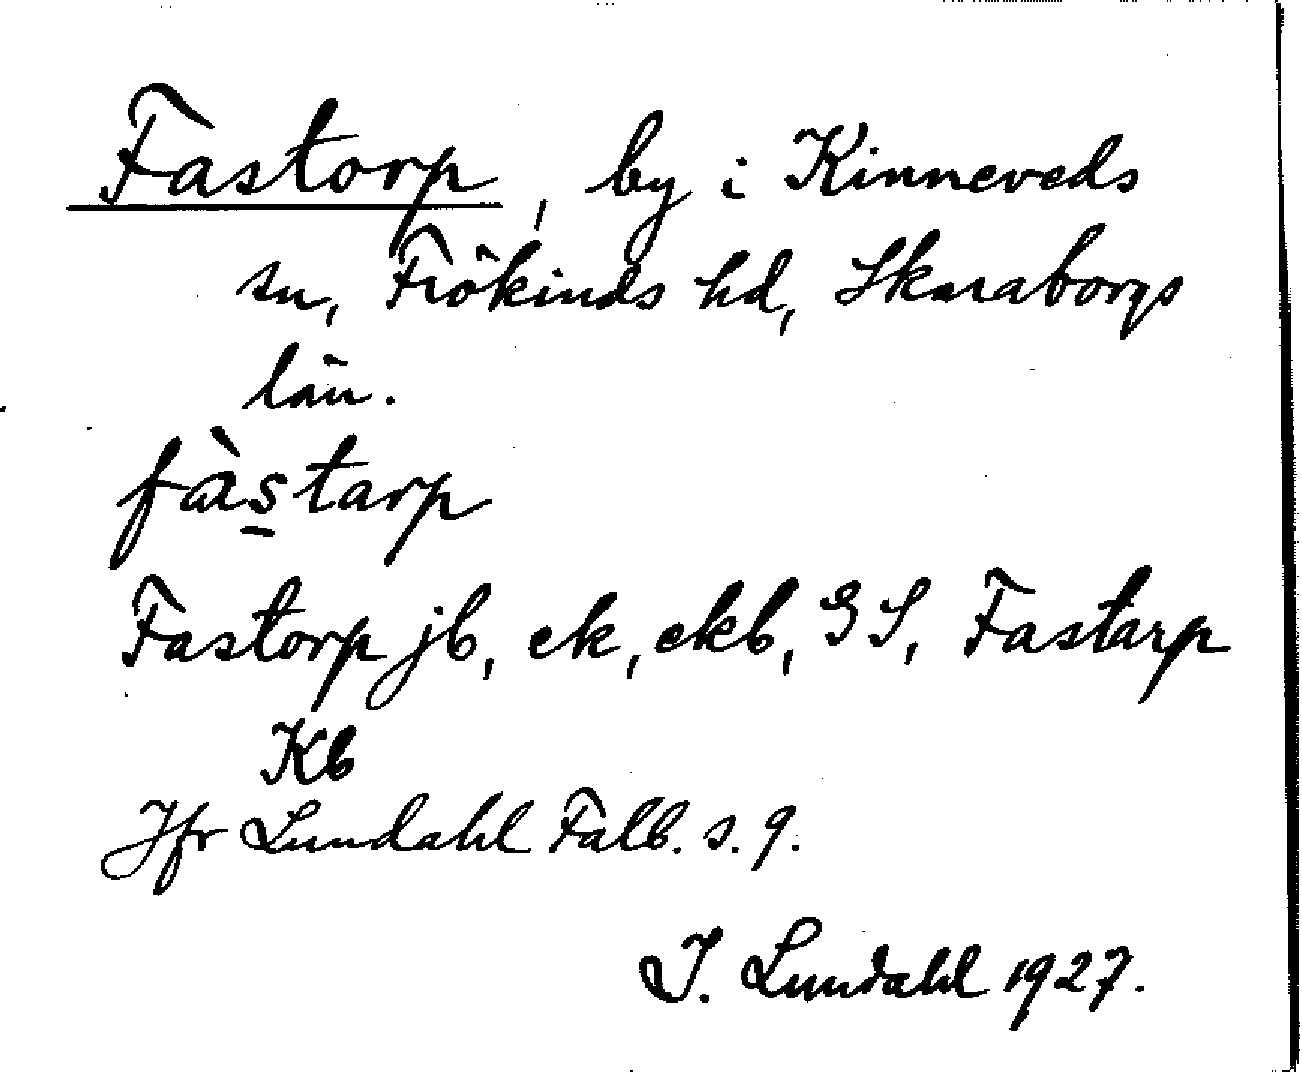 Fastorp, by i Kinneveds
sn, Frökinds hd, Skaraborgs
län.
fàs̲tarp
Fastorp jb, ek, ekb, GS, Fastarp
Kb
Jfr Lundahl Falb. s. 9.
I. Lundahl 1927.